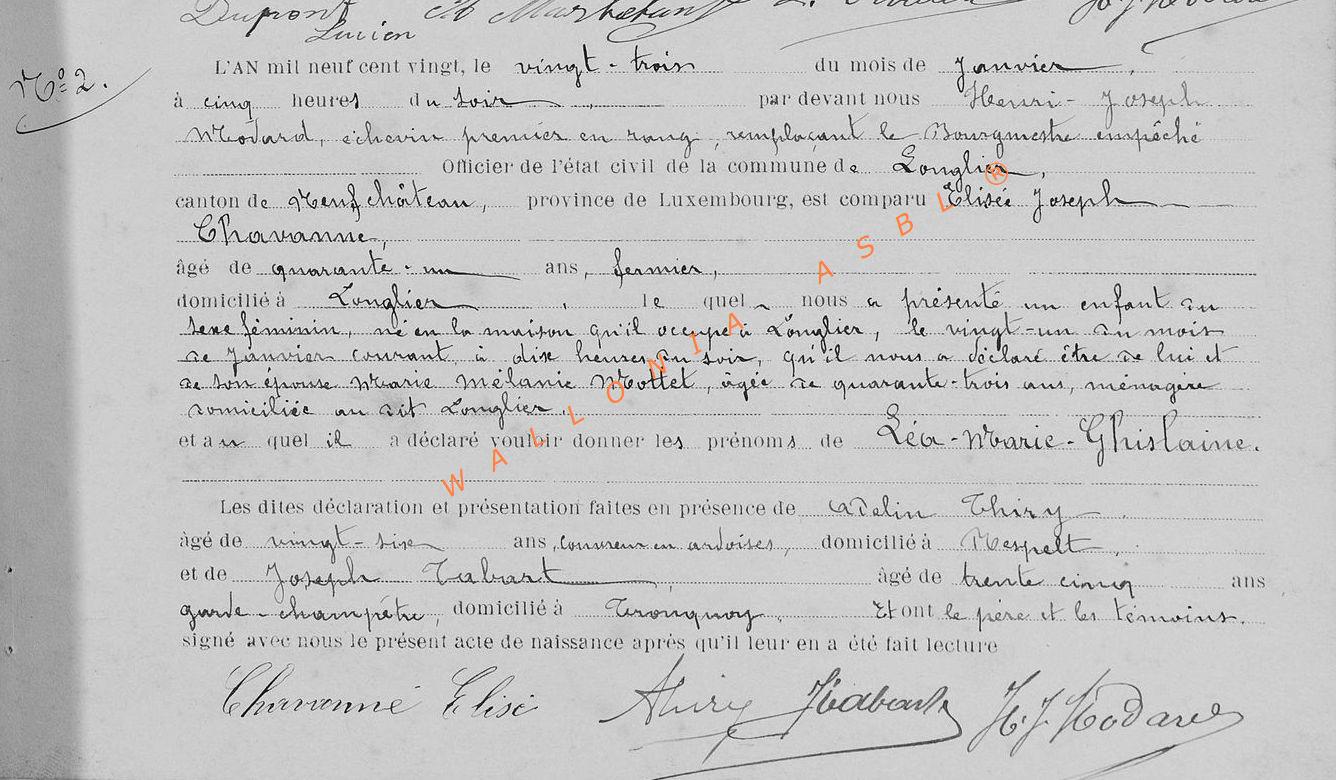 Dupont
Lucien
N° 2.
L'AN mil neuf cent vingt, le vingt-trois du mois de Janvier,
à cinq heures du soir, par devant nous Henri-Joseph
Modard, échevin premier en rang, remplaçant le Bourgmestre empêché
Officier de l'état civil de la commune de Longlier,
canton de Neufchâteau, province de Luxembourg, est comparu Elisée Joseph
Chavanne,
âgé de quarante-un ans, fermier,
domicilié à Longlier, le quel nous a présenté un enfant du
sexe féminin, né en la maison qu'il occupe à Longlier, le vingt-un du mois
de Janvier courant, à dix heures du soir, qu'il nous a déclaré être de lui et
de son épouse Marie Mélanie Mottet, âgée de quarante-trois ans, ménagère
domiciliée au dit Longlier.
et au quel il a déclaré vouloir donner les prénoms de Léa-Marie-Ghislaine.
Les dites déclaration et présentation faites en présence de Adelin Thiry
âgé de vingt-six ans, couvreur en ardoises, domicilié à Respelt,
et de Joseph Tabart, âgé de trente cinq ans
garde-champêtre, domicilié à Tronquoy. Et ont le père et les témoins.
signé avec nous le présent acte de naissance après qu'il leur en a été fait lecture
Chavanne Elisé Thiry J Tabart H. J. Modard
WALLONIA ASBL ®